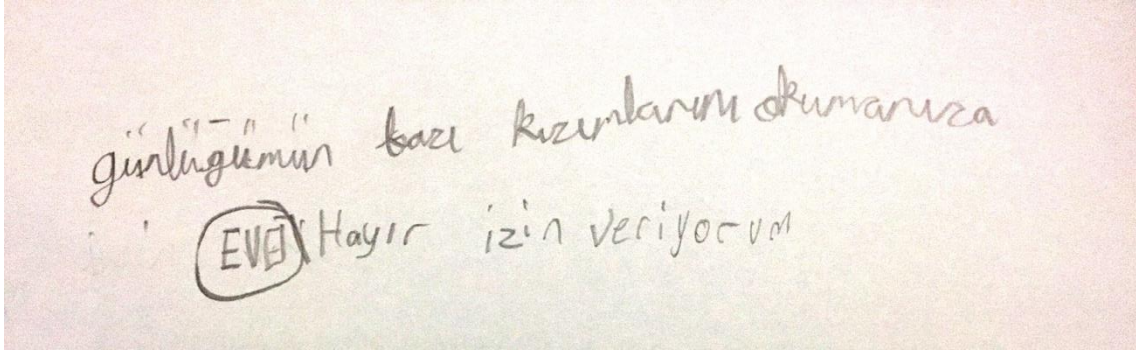 günlüğümün bazı kızımlarını okumanıza
EVET\Hayır izin veriyorum